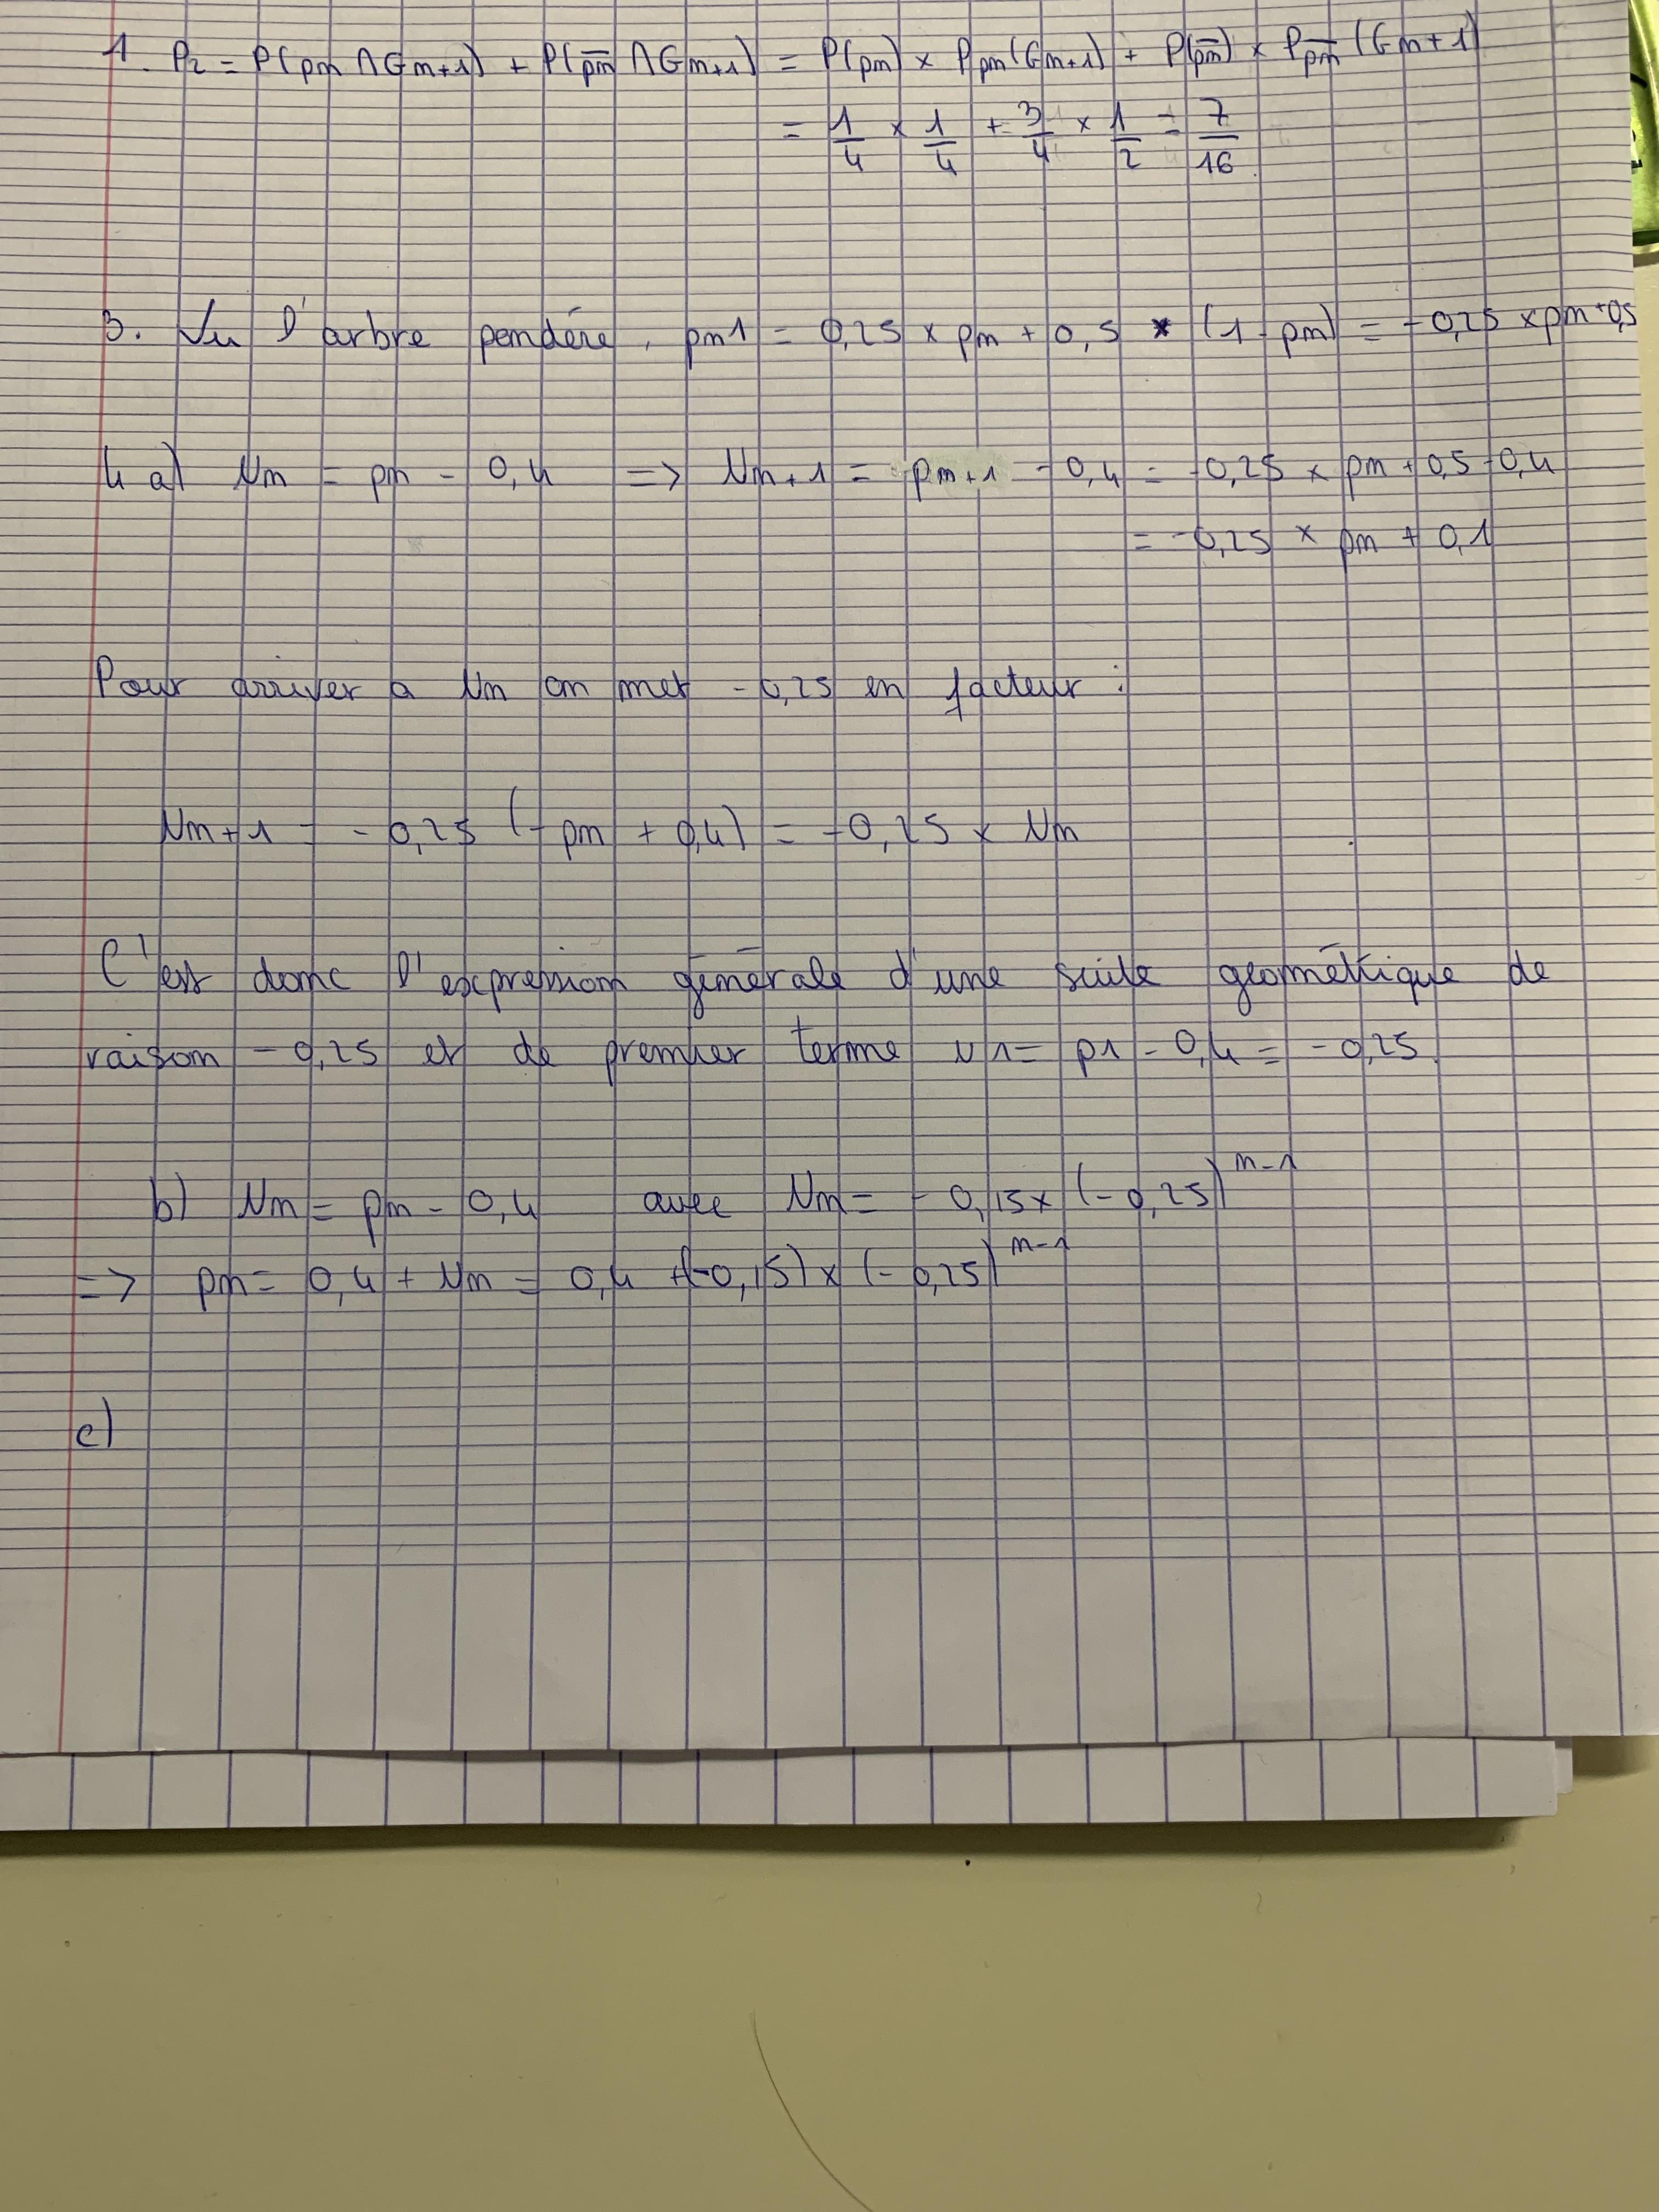 1. P₂ = P(pm ∩ Gm+1) + P(p̅m̅ ∩ Gm+1) = P(pm) × Ppm(Gm+1) + P(p̅m̅) × Pp̅m̅ (Gm+1)
= 1/4 × 1/4 + 3/4 × 1/2 = 7/16
3. Vu l'arbre pondéré, pm1 = 0,25 × pm + 0,5 * (1-pm) = -0,25 × pm+0,5
4 a) Vm = pm - 0,4 => Vm+1 = pm+1 - 0,4 = -0,25 × pm + 0,5-0,4
= -0,25 × pm + 0,1
Pour arriver a Vm on met -0,25 en facteur :
Vm+1 = -0,25 (-pm + 0,4) = -0,25 × Vm
C'est donc l'expression générale d'une suite géométrique de
raison -0,25 et de premier terme v1 = p1 - 0,4 = -0,25
b) Vm = pm - 0,4 avec Vm = -0,15 × (-0,25)^m-1
=> pm = 0,4 + Vm = 0,4 +(-0,15) × (-0,25)^m-1
c)